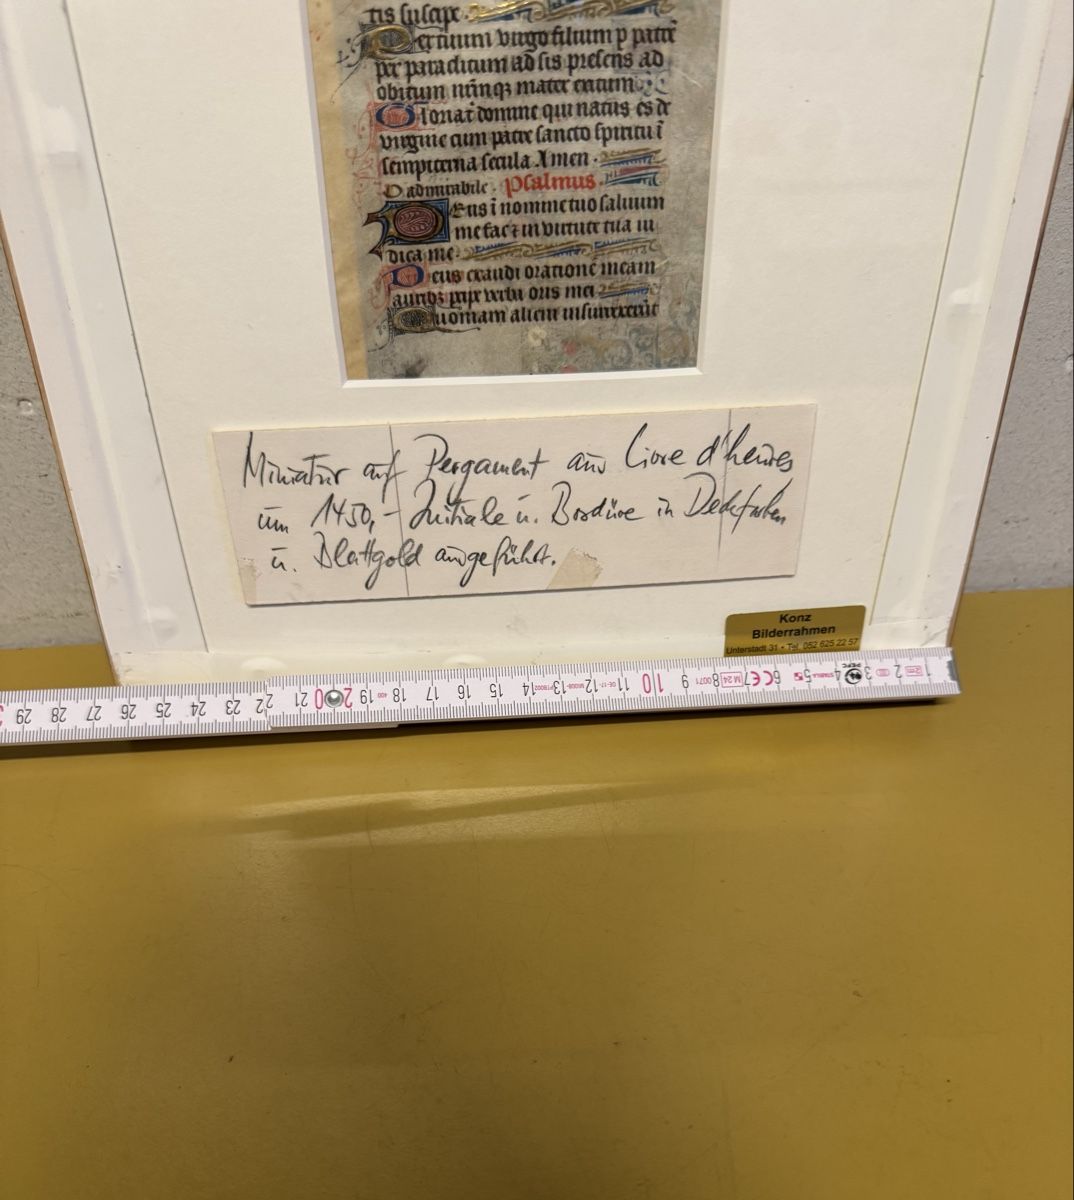 tis suscipe
Per tuum virgo filium p patrē
per paraclitum ad sis presens ad
obitum nr̄m q; mater exitum
Gloria t̄ domine qui natus es de
virgine cum patre sancto spiritu ī
sempiterna secula Amen ·
O admirabile · Psalmus ·
Deus ī nomine tuo saluum
me fac ⁊ in virtute tua iu
dica me ·
Deus exaudi orationē meam
auribꝫ ꝑcipe verba oris mei
Quoniam alieni insurrexerūt
Miniatur auf Pergament aus livre d'heures
um 1450,- Initiale u. Bordüre in Deckfarben
u. Blattgold ausgeführt.
Konz
Bilderrahmen
Unterstadt 31 • Tel. 052 625 22 57
29 28 27 26 25 24 23 22 21 20 19 18 17 16 15 14 13 12 11 10 9 8 7 6 5 4 3 2 1